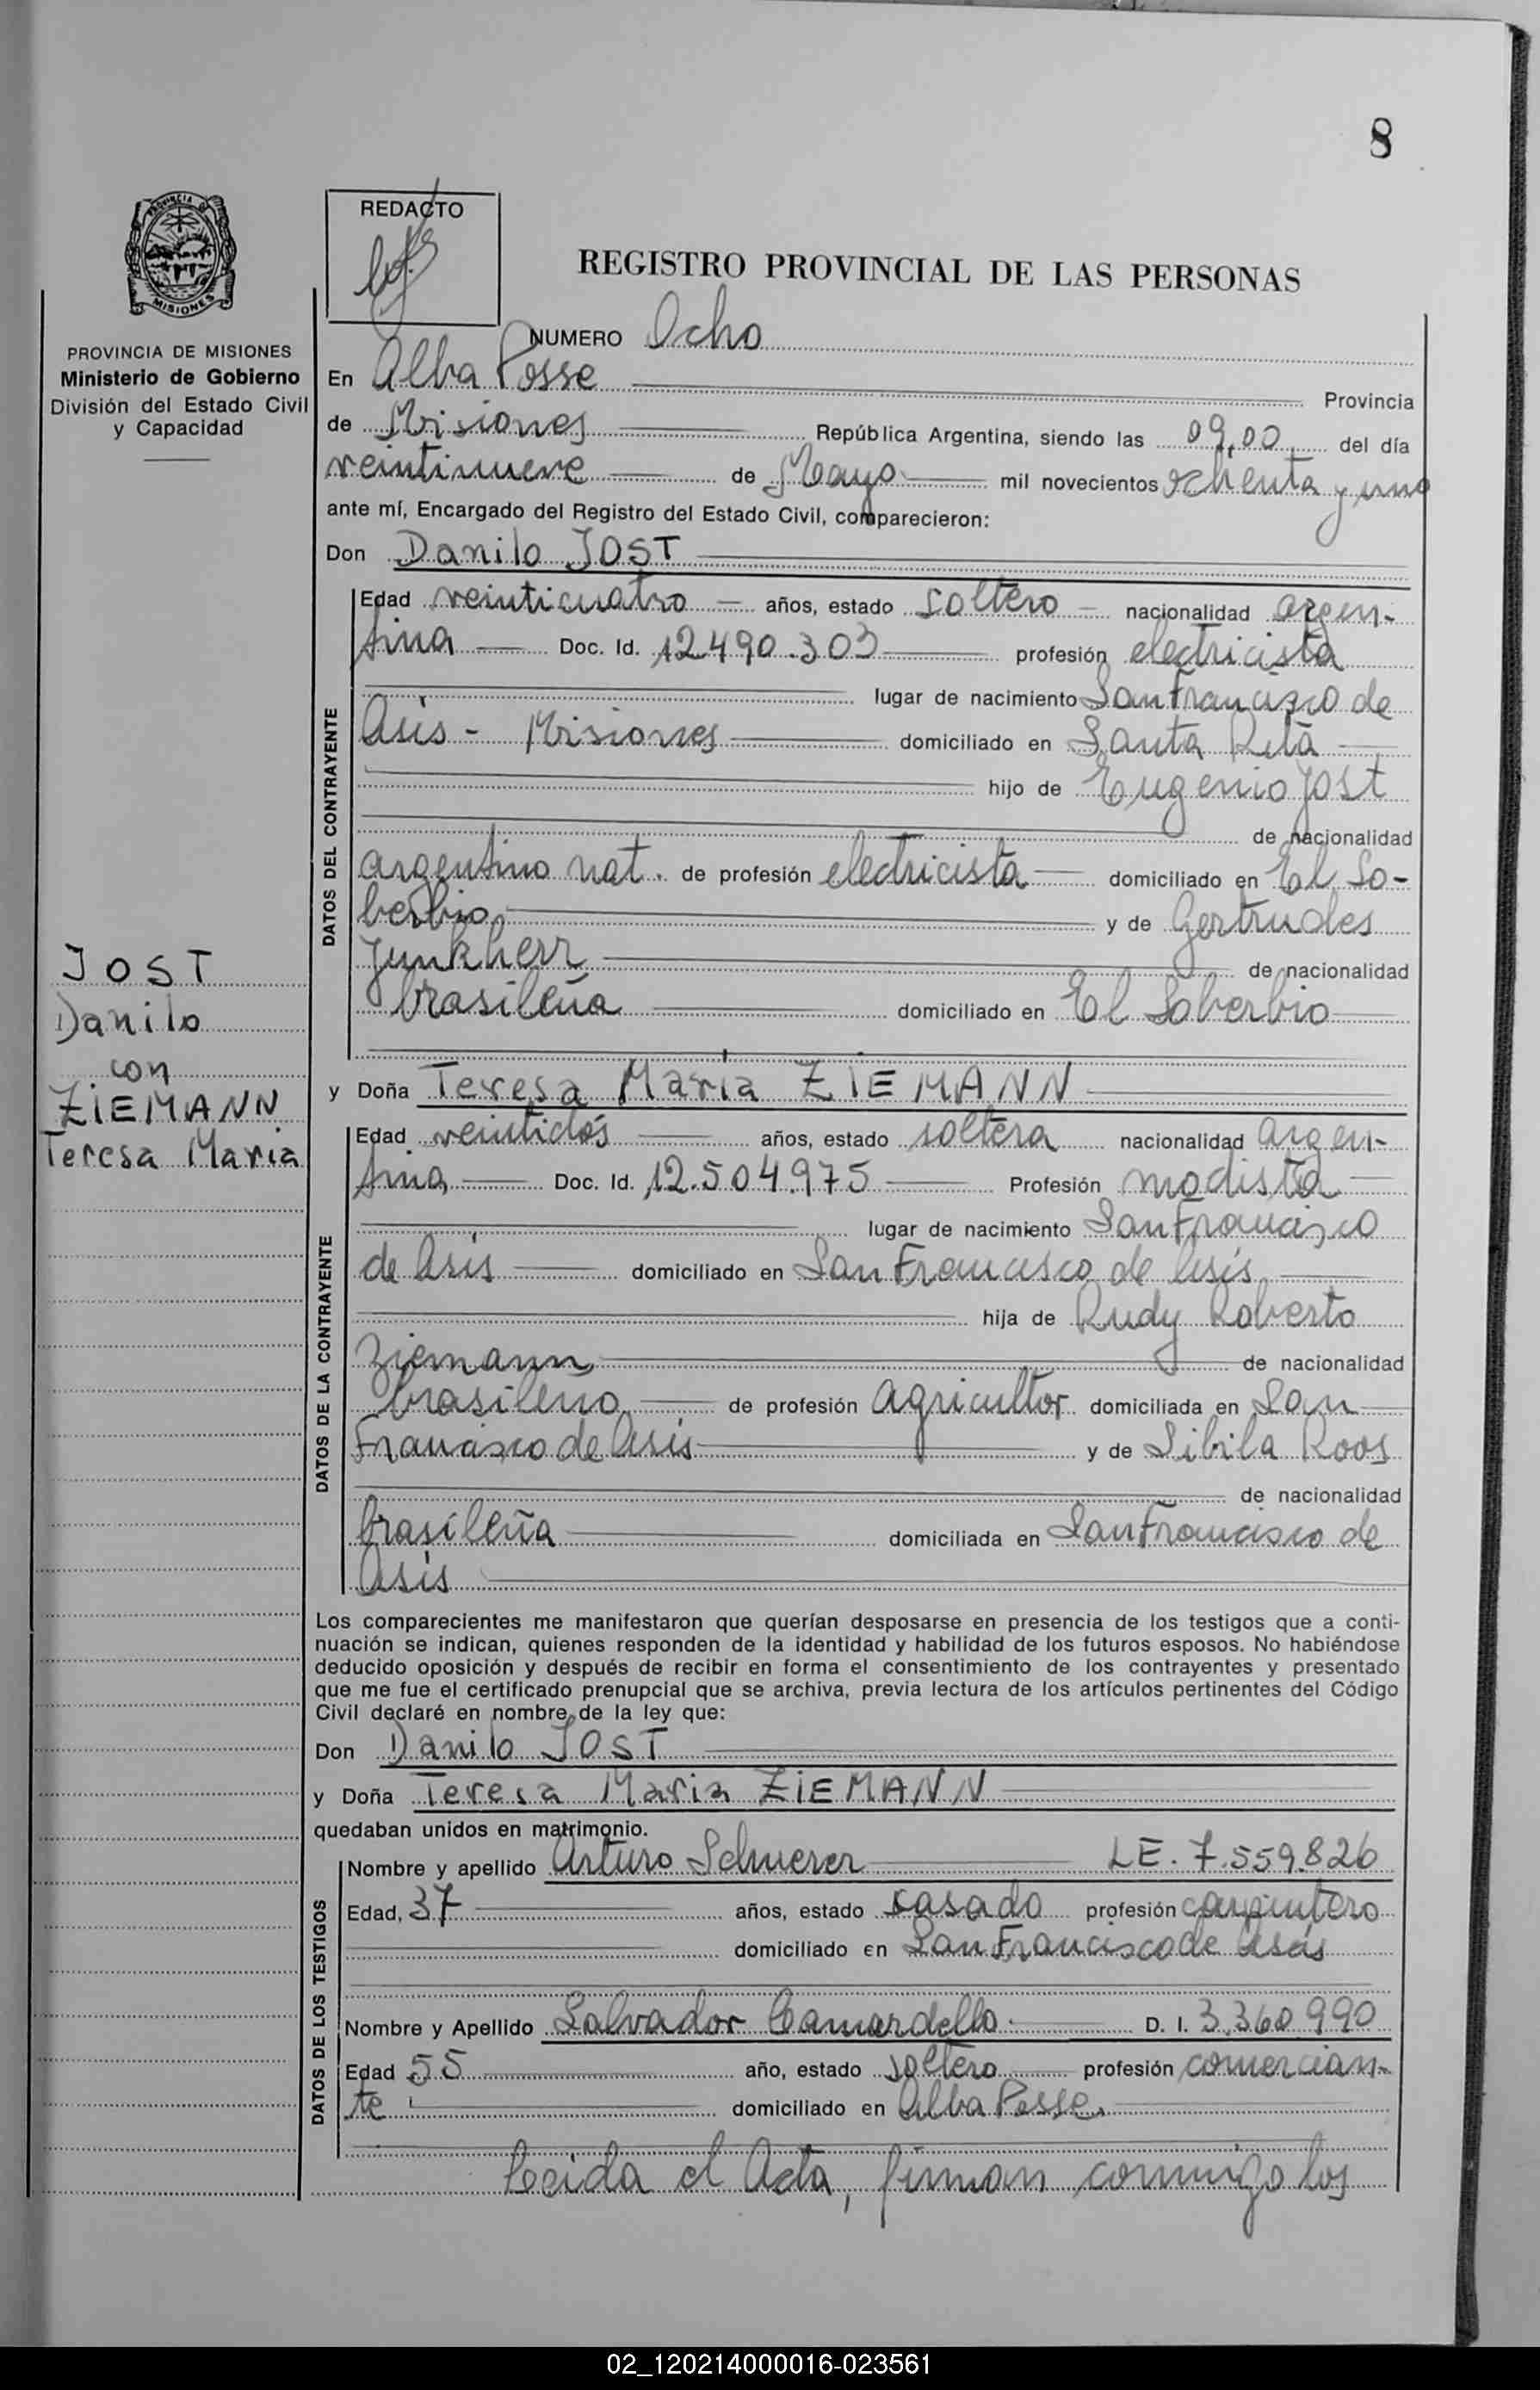 8
PROVINCIA DE
MISIONES
REDACTO
REGISTRO PROVINCIAL DE LAS PERSONAS
PROVINCIA DE MISIONES
Ministerio de Gobierno
División del Estado Civil
y Capacidad
NUMERO Ocho
En Alba Posse Provincia
de Misiones República Argentina, siendo las 09,00 del día
veintinueve de Mayo mil novecientos ochenta y uno
ante mí, Encargado del Registro del Estado Civil, comparecieron:
Don Danilo JOST
DATOS DEL CONTRAYENTE
Edad veinticuatro años, estado soltero nacionalidad argen-
tina Doc. Id. 12.490.303 profesión electricista
lugar de nacimiento San Francisco de
Asis - Misiones domiciliado en Santa Rita
hijo de Eugenio Jost
de nacionalidad
argentino nat. de profesión electricista domiciliado en El So-
berbio y de Gertrudes
Junkherr de nacionalidad
brasileña domiciliado en El Soberbio
JOST
Danilo
con
ZIEMANN
Teresa Maria
y Doña Teresa Maria ZIEMANN
DATOS DE LA CONTRAYENTE
Edad veintidós años, estado soltera nacionalidad argen-
tina Doc. Id. 12.504.975 Profesión modista
lugar de nacimiento San Francisco
de Asis domiciliado en San Francisco de Asis
hija de Rudy Roberto
Ziemann de nacionalidad
brasileno de profesión agricultor domiciliada en San
Francisco de Asis y de Sibila Roos
de nacionalidad
brasileña domiciliada en San Francisco de
Asis
Los comparecientes me manifestaron que querían desposarse en presencia de los testigos que a conti-
nuación se indican, quienes responden de la identidad y habilidad de los futuros esposos. No habiéndose
deducido oposición y después de recibir en forma el consentimiento de los contrayentes y presentado
que me fue el certificado prenupcial que se archiva, previa lectura de los artículos pertinentes del Código
Civil declaré en nombre de la ley que:
Don Danilo JOST
y Doña Teresa Maria ZIEMANN
quedaban unidos en matrimonio.
DATOS DE LOS TESTIGOS
Nombre y apellido Arturo Schuerer LE. 7.559.826
Edad, 37 años, estado casado profesión carpintero
domiciliado en San Francisco de Asis
Nombre y Apellido Salvador Camardello D. I. 3.360.990
Edad 55 año, estado soltero profesión comercian-
te domiciliado en Alba Posse.
Leida el Acta, firman conmigo los
02_120214000016-023561